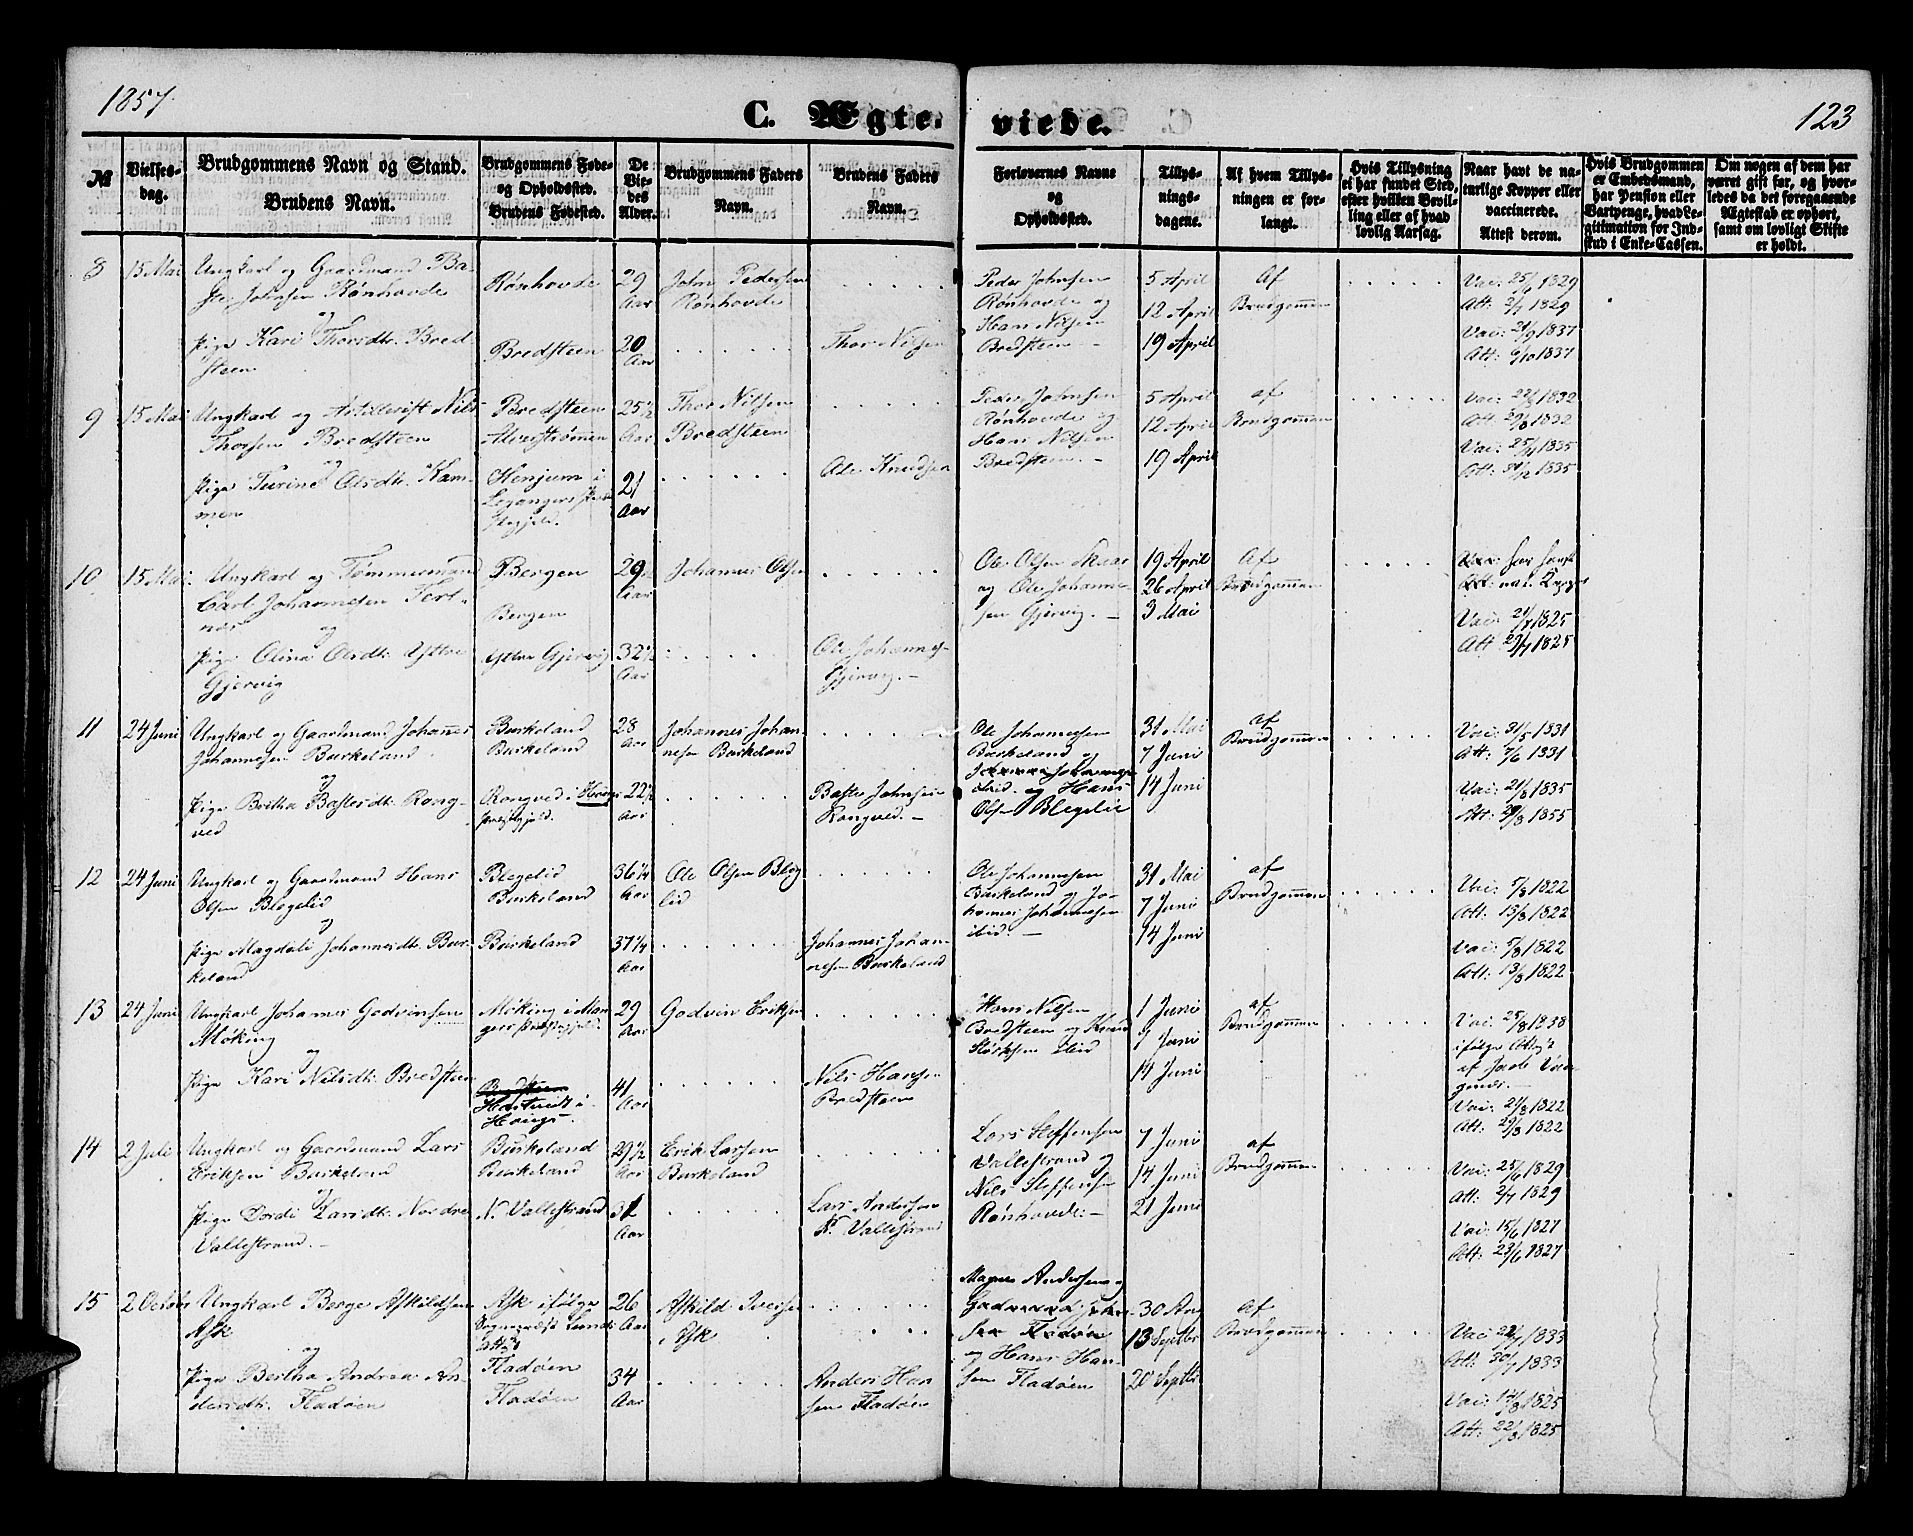 1857.
C. Ægte.
viede.
123
№
Vielses-
dag.
Brudgommens Navn og Stand.
Brudens Navn.
Brudgommens Føde-
og Opholdssted.
Brudens Fødested.
De
Vie-
des
Alder.
Brudgommens Faders
Navn.
Brudens Faders
Navn.
Forlovernes Navne
og
Opholdssted.
Tillys-
nings-
dagene.
Af hvem Tillys-
ningen er for-
langt.
Hvis Tillysning
ei har fundet Sted,
efter hvilken Bevil-
ling eller af hvad
lovlig Aarsag.
Naar havt de na-
turlige Kopper eller
vaccinerede.
Attest derom.
Hvis Brudgommen
er Embedsmand,
har Pension eller
Vartpenge, hvad Le-
gitimation for Ind-
skud i Enke-Cassen.
Om nogen af dem har
været gift før, og hvor-
ledes da det foregaaende
Ægteskab er ophørt,
samt om lovligt Skifte
er holdt.
8
15 Mai
Ungkarl og Gaardmand Ba-
ste Johnsen Rønhovde
og
Pige Kari Thorsdtr. Bred-
steen
Rønhovde
Bredsteen
29
Aar
20
Aar
John Pedersen
Rønhovde
Thor Nilsen
Peder Johnsen
Rønhovde og
Hans Nilsen
Bredsteen
5 April
12 April
19 April
Af
Brudgommen
Vac: 25/6 1829
Att: 2/7 1829
Vac: 21/9 1837
Att: 6/10 1837
9
15 Mai
Ungkarl og Artillerist Nils
Thorsen Bredsteen
og
Pige Turine Olsdtr. Kam-
men
Bredsteen
Alverstrømmen
Henjum i
Leganger Præste-
gjeld.
25 1/2
Aar
21
Aar
Thor Nilsen
Bredsteen
Ole Knudsen
Peder Johnsen
Rønhovde og
Hans Nilsen
Bredsteen.
5 April
12 April
19 April
af
Brudgommen
10
15 Mai
Ungkarl og Tømmermand
Carl Johannesen Tert-
næs
og
Pige Olina Olsdtr. Yttre
Gjervig
Bergen
Bergen
Yttre Gjervig
29
Aar
32 1/2
Aar
Johannes Olsen
Ole Johannes-
Gjervig.
Ole Olsen Skaar
og Ole Johanne-
sen Gjervig.
19 April
26 April
3 Mai
Af
Brudgommen
har havt
nat. Kopper
Att: 29/7 1825
11
24 Juni
Ungkarl og Gaardmand Johannes
Johannesen Burkeland
og
Pige Britha Bastesdtr. Rong-
ved
Burkeland
Burkeland
Rongved i Hougs
Præstegjeld.
28
Aar
22 1/2
Aar
Johannes Johan-
nesen Burkeland
Baste Johnsen
Rongved.
Ole Johannesen
Burkeland og
ibid. og Hans
Olsen Blegelie
31 Mai
7 Juni
14 Juni
af
Brudgommen
Vac: 31/5 1831
Att: 7/6 1831
Vac: 21/8 1835
Att: 29/8 1855
12
24 Juni
Ungkarl og Gaardmand Hans
Olsen Blegelid
og
Pige Magdeli Johannesdtr. Bur-
keland
Blegelid
Burkeland
Burkeland
36 1/4
Aar
37 1/4
Aar
Ole Olsen Bleg
lid
Johannes Johan-
nesen Burkeland
Ole Johannesen
Burkeland og Jo-
hannes Johannesen
ibid.
31 Mai
7 Juni
14 Juni
af
Brudgommen
Vac: 5/8 1822
Att: 13/8 1822
Vac: 5/8 1822
Att: 13/8 1822
13
24 Juni
Ungkarl Johannes Godvinsen
Møking
og
Pige Kari Nilsdtr. Bredsteen
Møking i Man-
gers Præstegjeld.
Bredsteen
Hostvidt i
Hougs
29
Aar
41
Aar
Godvin Eriksen
Nils Hansen
Bredsteen
Hans Nilsen
Bredsteen og Knud
ibid
1 Juni
7 Juni
14 Juni
af
Brudgommen
Vac: 25/8 1838
ifølge Attest
af Jacob
Vac: 21/8 1822
Att: 29/8 1822
14
2 Juli
Ungkarl og Gaardmand Lars
Eriksen Burkeland
og
Pige Dordi Larsdtr. Nordre
Vallestrand.
Burkeland
Burkeland
N. Vallestrand
29 1/2
Aar
31
Aar
Erik Larsen
Burkeland
Lars Andersen
N. Vallestrand
Lars Steffensen
Vallestrand og
Nils Steffensen
Rønhovde.
7 Juni
14 Juni
21 Juni
af
Brudgommen
Vac: 25/6 1829
Att: 2/7 1829
Vac: 15/6 1827
Att: 23/6 1827
15
2 October
Ungkarl Berge Askildsen
Ask
og
Pige Bertha Andrea An-
dersdtr. Fladøen
Ask ifølge
Sognepræst Lunds
Att.
Fladøen
Fladøen
26
Aar
34
Aar
Askild Iversen
Ask
Anders Han
sen Fladøen
Magnus Andersen og
sen Fladøen
og Hans Han-
sen Fladøen
30 Aug
13 Septbr
20 Septbr
af
Brudgommen
Vac 22/7 1833
Att: 30/7 1833
Vac: 14/8 1825
Att: 22/8 1825